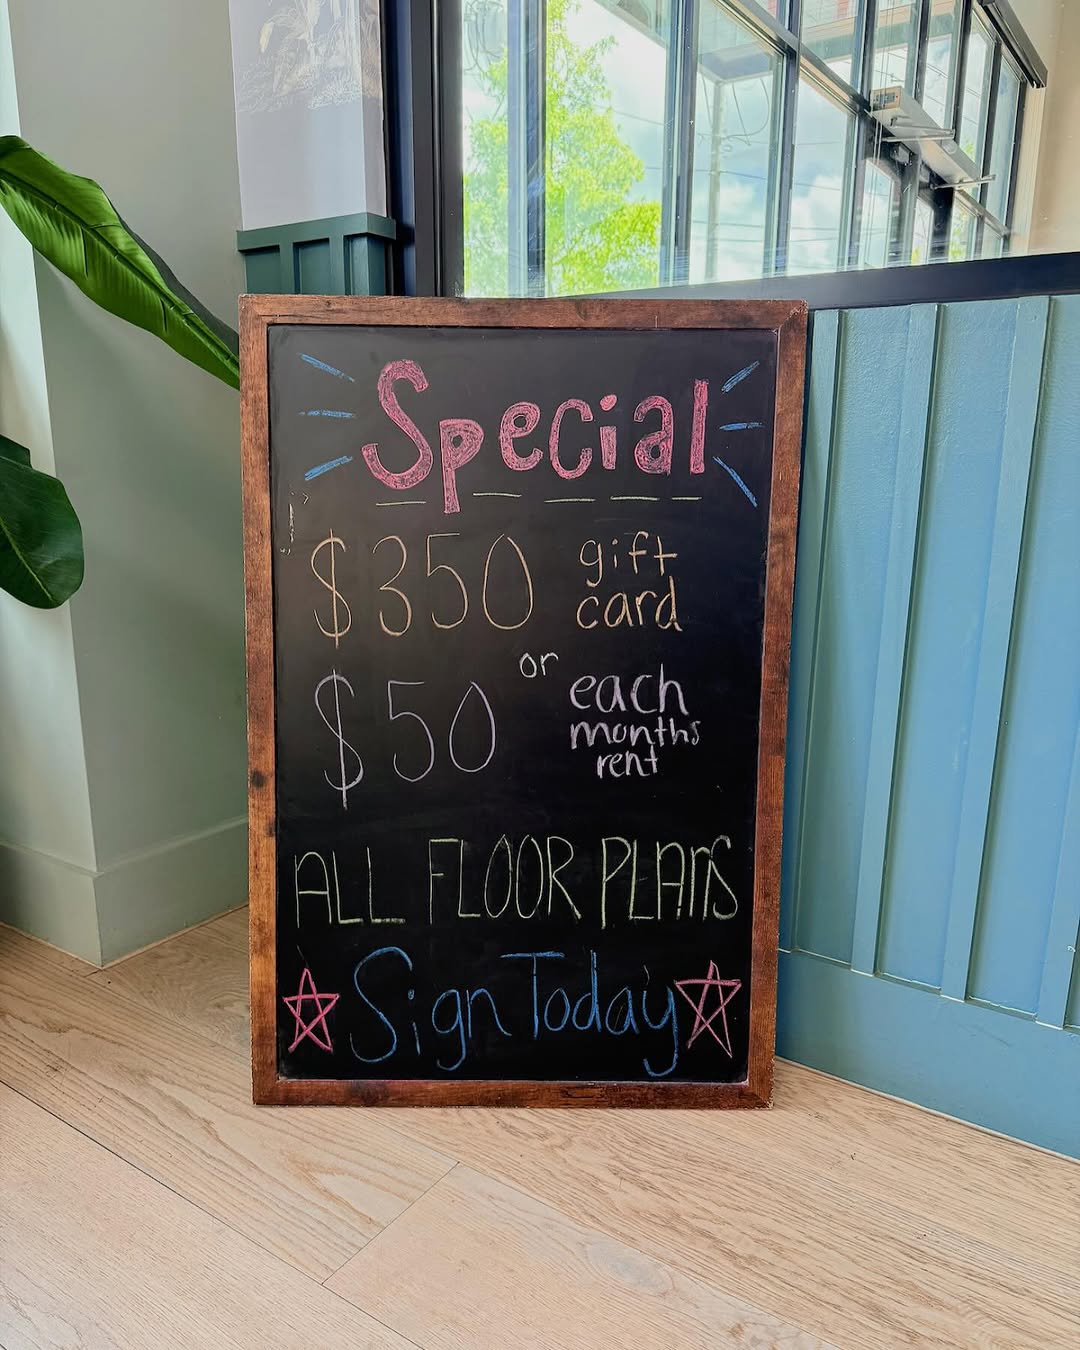 Special
$350 gift card
or
$50 each months rent
ALL FLOOR PLAnS
Sign Today